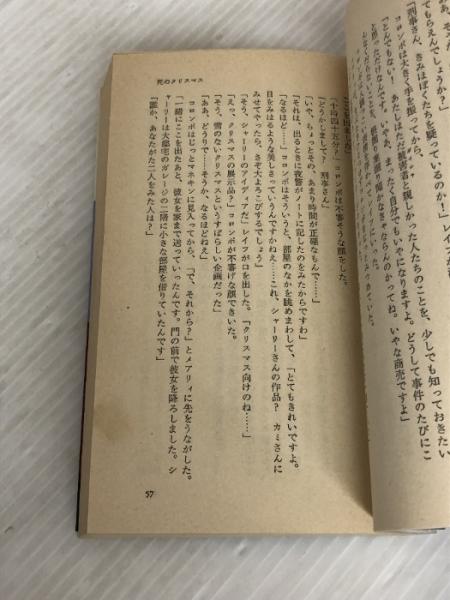 あ、そんな
てもらえんでしょうか？」
「刑事さん、きみはぼくたちを疑っているのか！」レイフが
コロンボは大きく手を振ってから、
「とんでもない！　あたしはただ被害者と親しかった人たちのことを、少しでも知っておきたい
と思っただけなんです。いやあ、まったく自分でもいやになりますよ。どうして事件のたびにこ
かなきゃならんのかってね。いやな商売ですよ」
「十時四十五分？」コロンボは不審そうな顔をした。
「どうかしまして？　刑事さん」
「いや、ちょっとその、あまり時間が正確なもんで……」
「それは、出るときに夜警がノートに記したのをみたからですわ」
「なるほど……」コロンボはそういうと、部屋のなかを眺めまわして、「とてもきれいですよ。
目をみはるような美しさっていうんですかねえ……これ、シャーリーさんの作品？　カミさんに
みせてやったら、さぞ大よろこびするでしょう」
「そう、シャーリーのアイディアだ」レイフが口を出した。「クリスマス向けのね……」
「えっ、クリスマスの展示品？」コロンボが不審げな顔できいた。
「そう、雪のないクリスマスというすばらしい企画だった」
「ああ、どうりで……そうか、なるほどねえ」
コロンボはじっとマネキンに見入ってから、「で、それから？」とメアリィに先をうながした。
「一緒にここを出たあと、彼女を家まで送っていったんです。門の前で彼女を降ろしました。シ
ャーリーは大邸宅のガレージの二階に小さな部屋を借りていたんです」
「誰か、あなたがた二人をみた人は？」
死のクリスマス
57